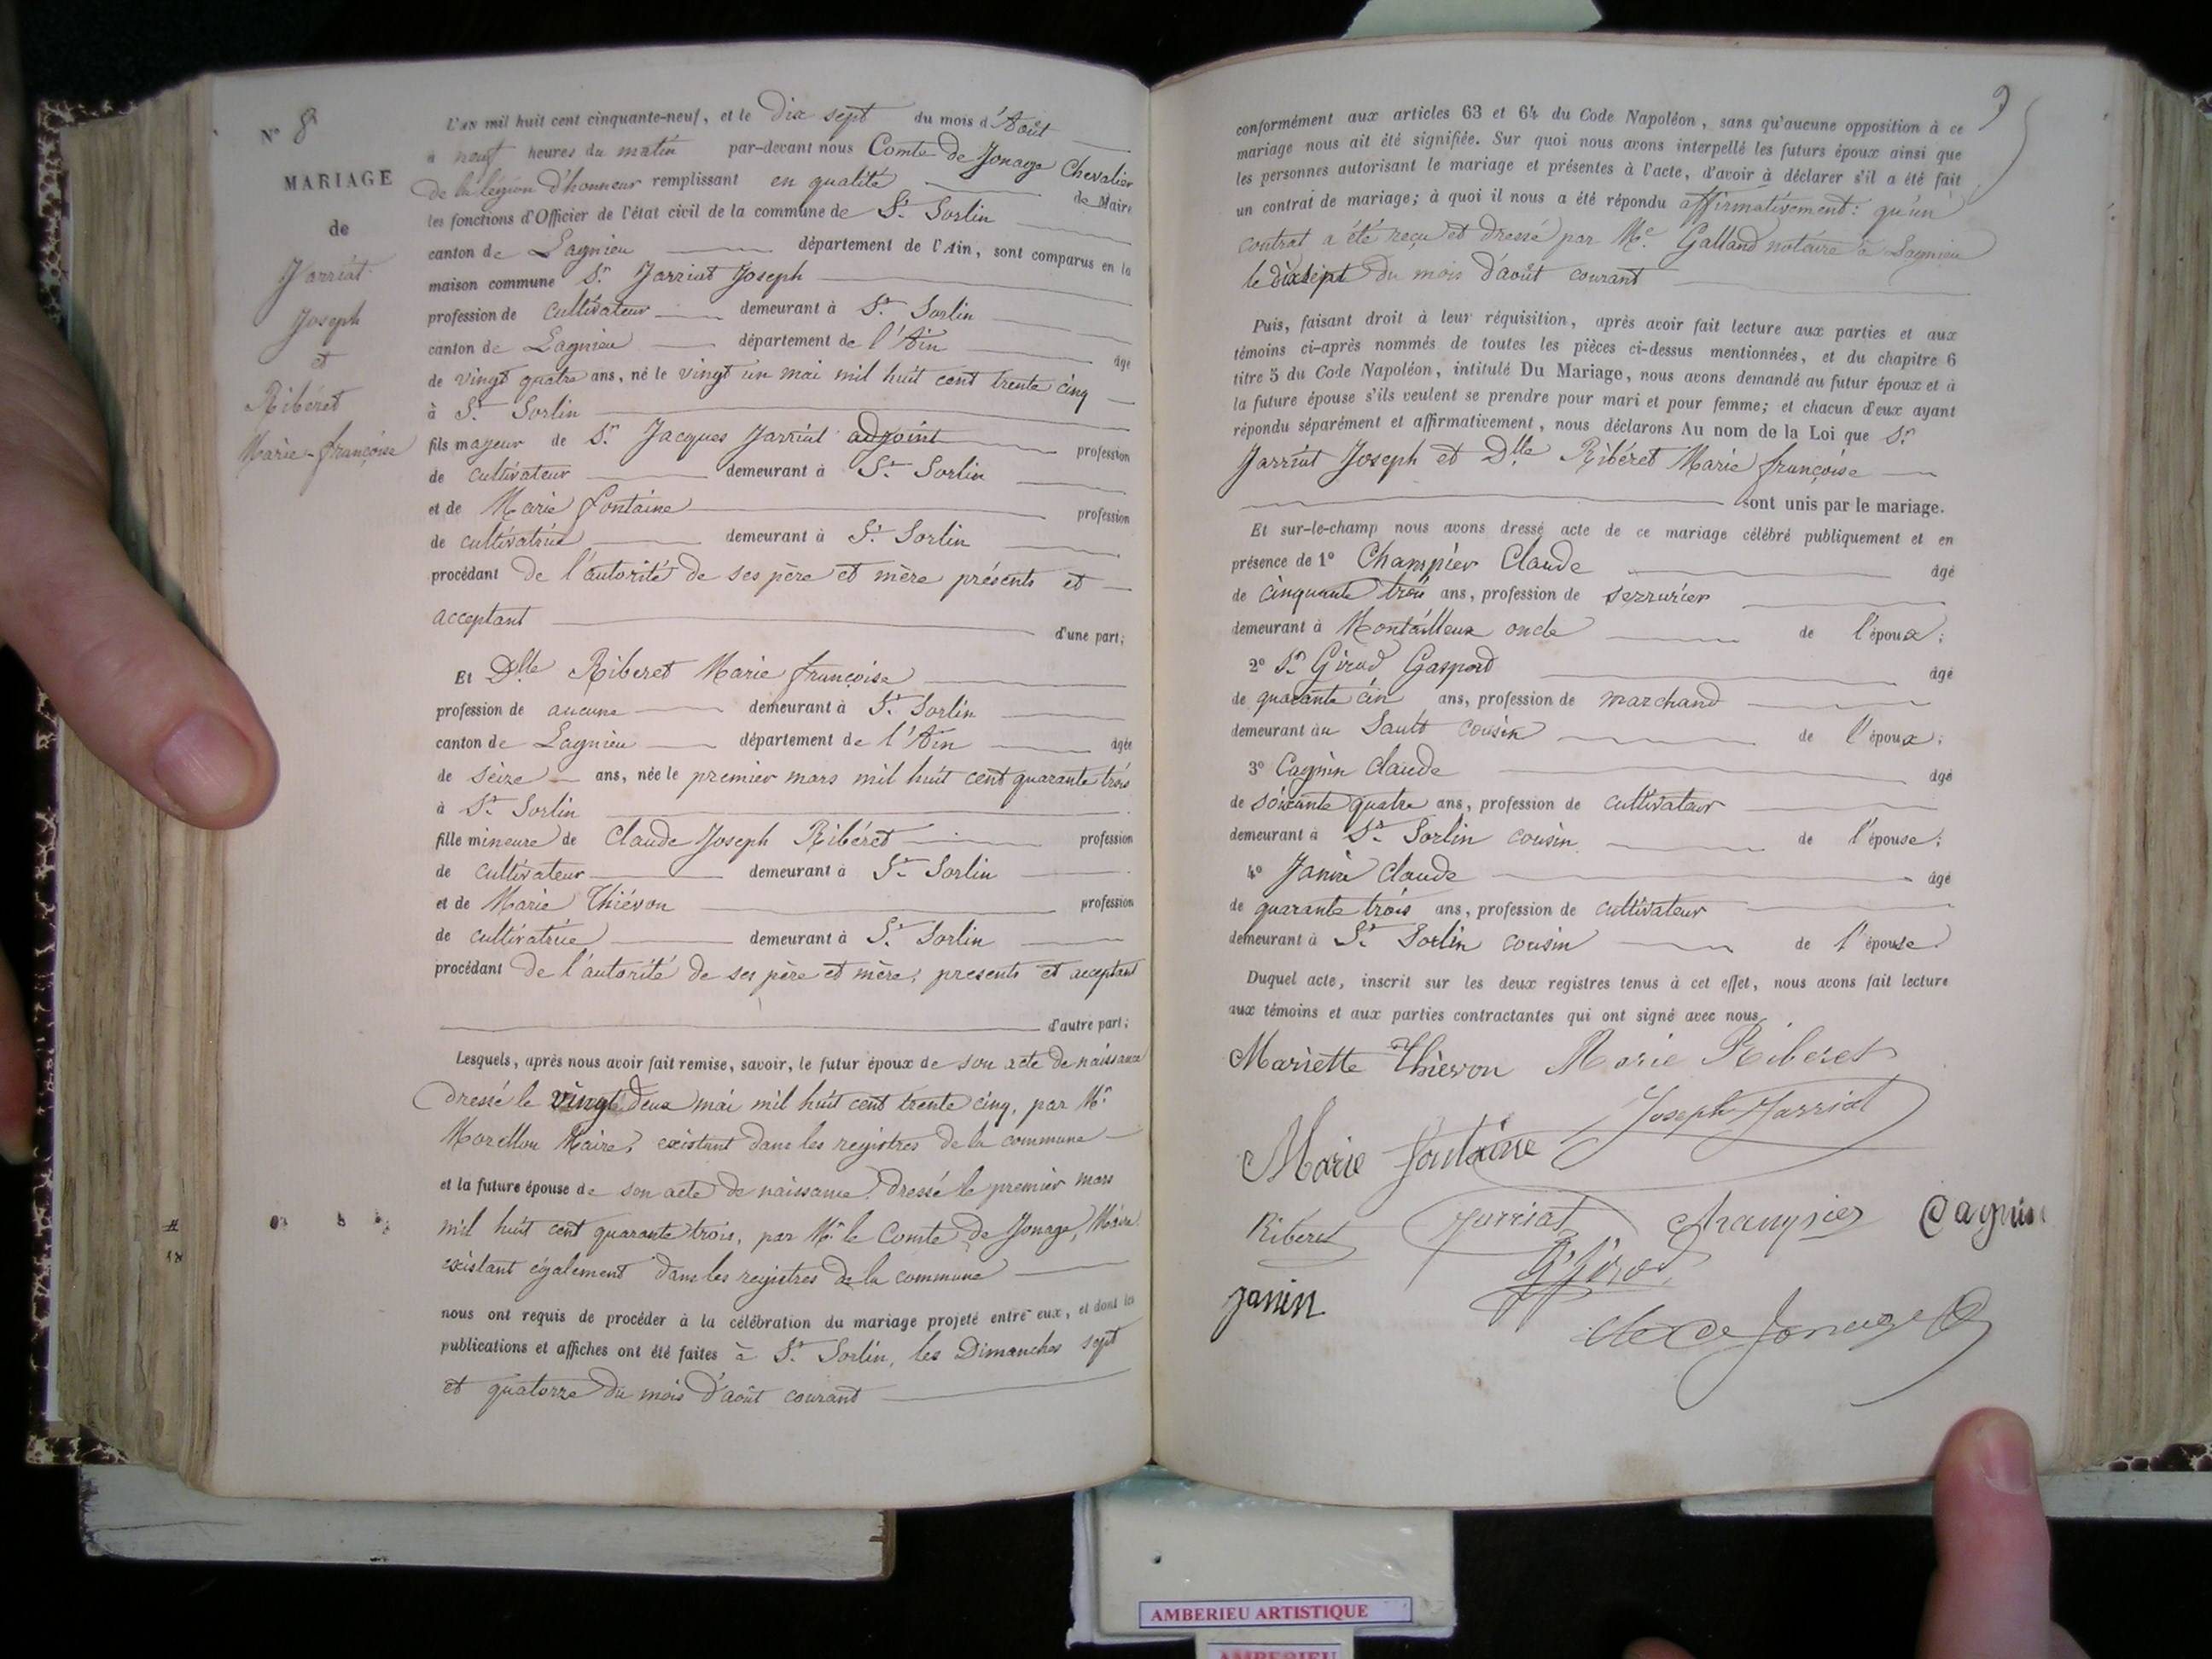 N° 8
MARIAGE
de
Jarriat
Joseph
et
Ribéret
Marie-françoise
L'an mil huit cent cinquante-neuf, et le Dix sept du mois d'Août
à neuf heures du matin par-devant nous Comte de Jonage Chevalier
de la légion d'honneur remplissant en qualité de Maire
les fonctions d'Officier de l'état civil de la commune de St. Sorlin
canton de Lagnieu département de l'Ain, sont comparus en la
maison commune Sr. Jarriat Joseph
profession de cultivateur demeurant à St. Sorlin
canton de Lagnieu département de l'Ain âgé
de vingt quatre ans, né le vingt un mai mil huit cent trente cinq
à St. Sorlin
fils majeur de Sr. Jacques Jarriat adjoint profession
de cultivateur demeurant à St. Sorlin
et de Marie fontaine profession
de cultivatrice demeurant à St. Sorlin
procédant de l'autorité de ses père et mère présents et
acceptant d'une part;
Et Dlle Riberet Marie françoise
profession de aucune demeurant à St. Sorlin
canton de Lagnieu département de l'Ain âgée
de seize ans, née le premier mars mil huit cent quarante trois
à St. Sorlin
fille mineure de Claude Joseph Ribéret profession
de cultivateur demeurant à St. Sorlin
et de Marie Thiévon profession
de cultivatrice demeurant à St. Sorlin
procédant de l'autorité de ses père et mère, presents et acceptant
d'autre part;
Lesquels, après nous avoir fait remise, savoir, le futur époux de son acte de naissance
dressé le vingt deux mai mil huit cent trente cinq, par Mr.
Morellon Maire, existant dans les registres de la commune
et la future épouse de son acte de naissance, dressé le premier mars
mil huit cent quarante trois, par Mr. le Comte de Jonage, Maire
existant également dans les registres de la commune
nous ont requis de procéder à la célébration du mariage projeté entre eux, et dont les
publications et affiches ont été faites à St. Sorlin, les Dimanches sept
et quatorze du mois d'août courant
9
conformément aux articles 63 et 64 du Code Napoléon, sans qu'aucune opposition à ce
mariage nous ait été signifiée. Sur quoi nous avons interpellé les futurs époux ainsi que
les personnes autorisant le mariage et présentes à l'acte, d'avoir à déclarer s'il a été fait
un contrat de mariage; à quoi il nous a été répondu affirmativement: qu'un
contrat a été reçu et dressé par Me. Galland notaire à Lagnieu
le dix sept du mois d'août courant
Puis, faisant droit à leur réquisition, après avoir fait lecture aux parties et aux
témoins ci-après nommés de toutes les pièces ci-dessus mentionnées, et du chapitre 6
titre 5 du Code Napoléon, intitulé Du Mariage, nous avons demandé au futur époux et à
la future épouse s'ils veulent se prendre pour mari et pour femme; et chacun d'eux ayant
répondu séparément et affirmativement, nous déclarons Au nom de la Loi que Sr.
Jarriat Joseph et Dlle Ribéret Marie françoise
sont unis par le mariage.
Et sur-le-champ nous avons dressé acte de ce mariage célébré publiquement et en
présence de 1° Champier Claude âgé
de cinquante trois ans, profession de serrurier
demeurant à Montailleux oncle de l'époux;
2° Sr. Girod Gaspard âgé
de quarante cin ans, profession de marchand
demeurant au Sault cousin de l'époux;
3° Cagnin Claude âgé
de soixante quatre ans, profession de cultivateur
demeurant à St. Sorlin cousin de l'épouse;
4° Janin Claude âgé
de quarante trois ans, profession de cultivateur
demeurant à St. Sorlin cousin de l'épouse
Duquel acte, inscrit sur les deux registres tenus à cet effet, nous avons fait lecture
aux témoins et aux parties contractantes qui ont signé avec nous
Mariette Thiévon Marie Riberet
Joseph Jarriat
Marie fontaine
Riberet Jarriat Champier Cagnin
G Girod
janin
de Jonage
AMBERIEU ARTISTIQUE
AMBERIEU